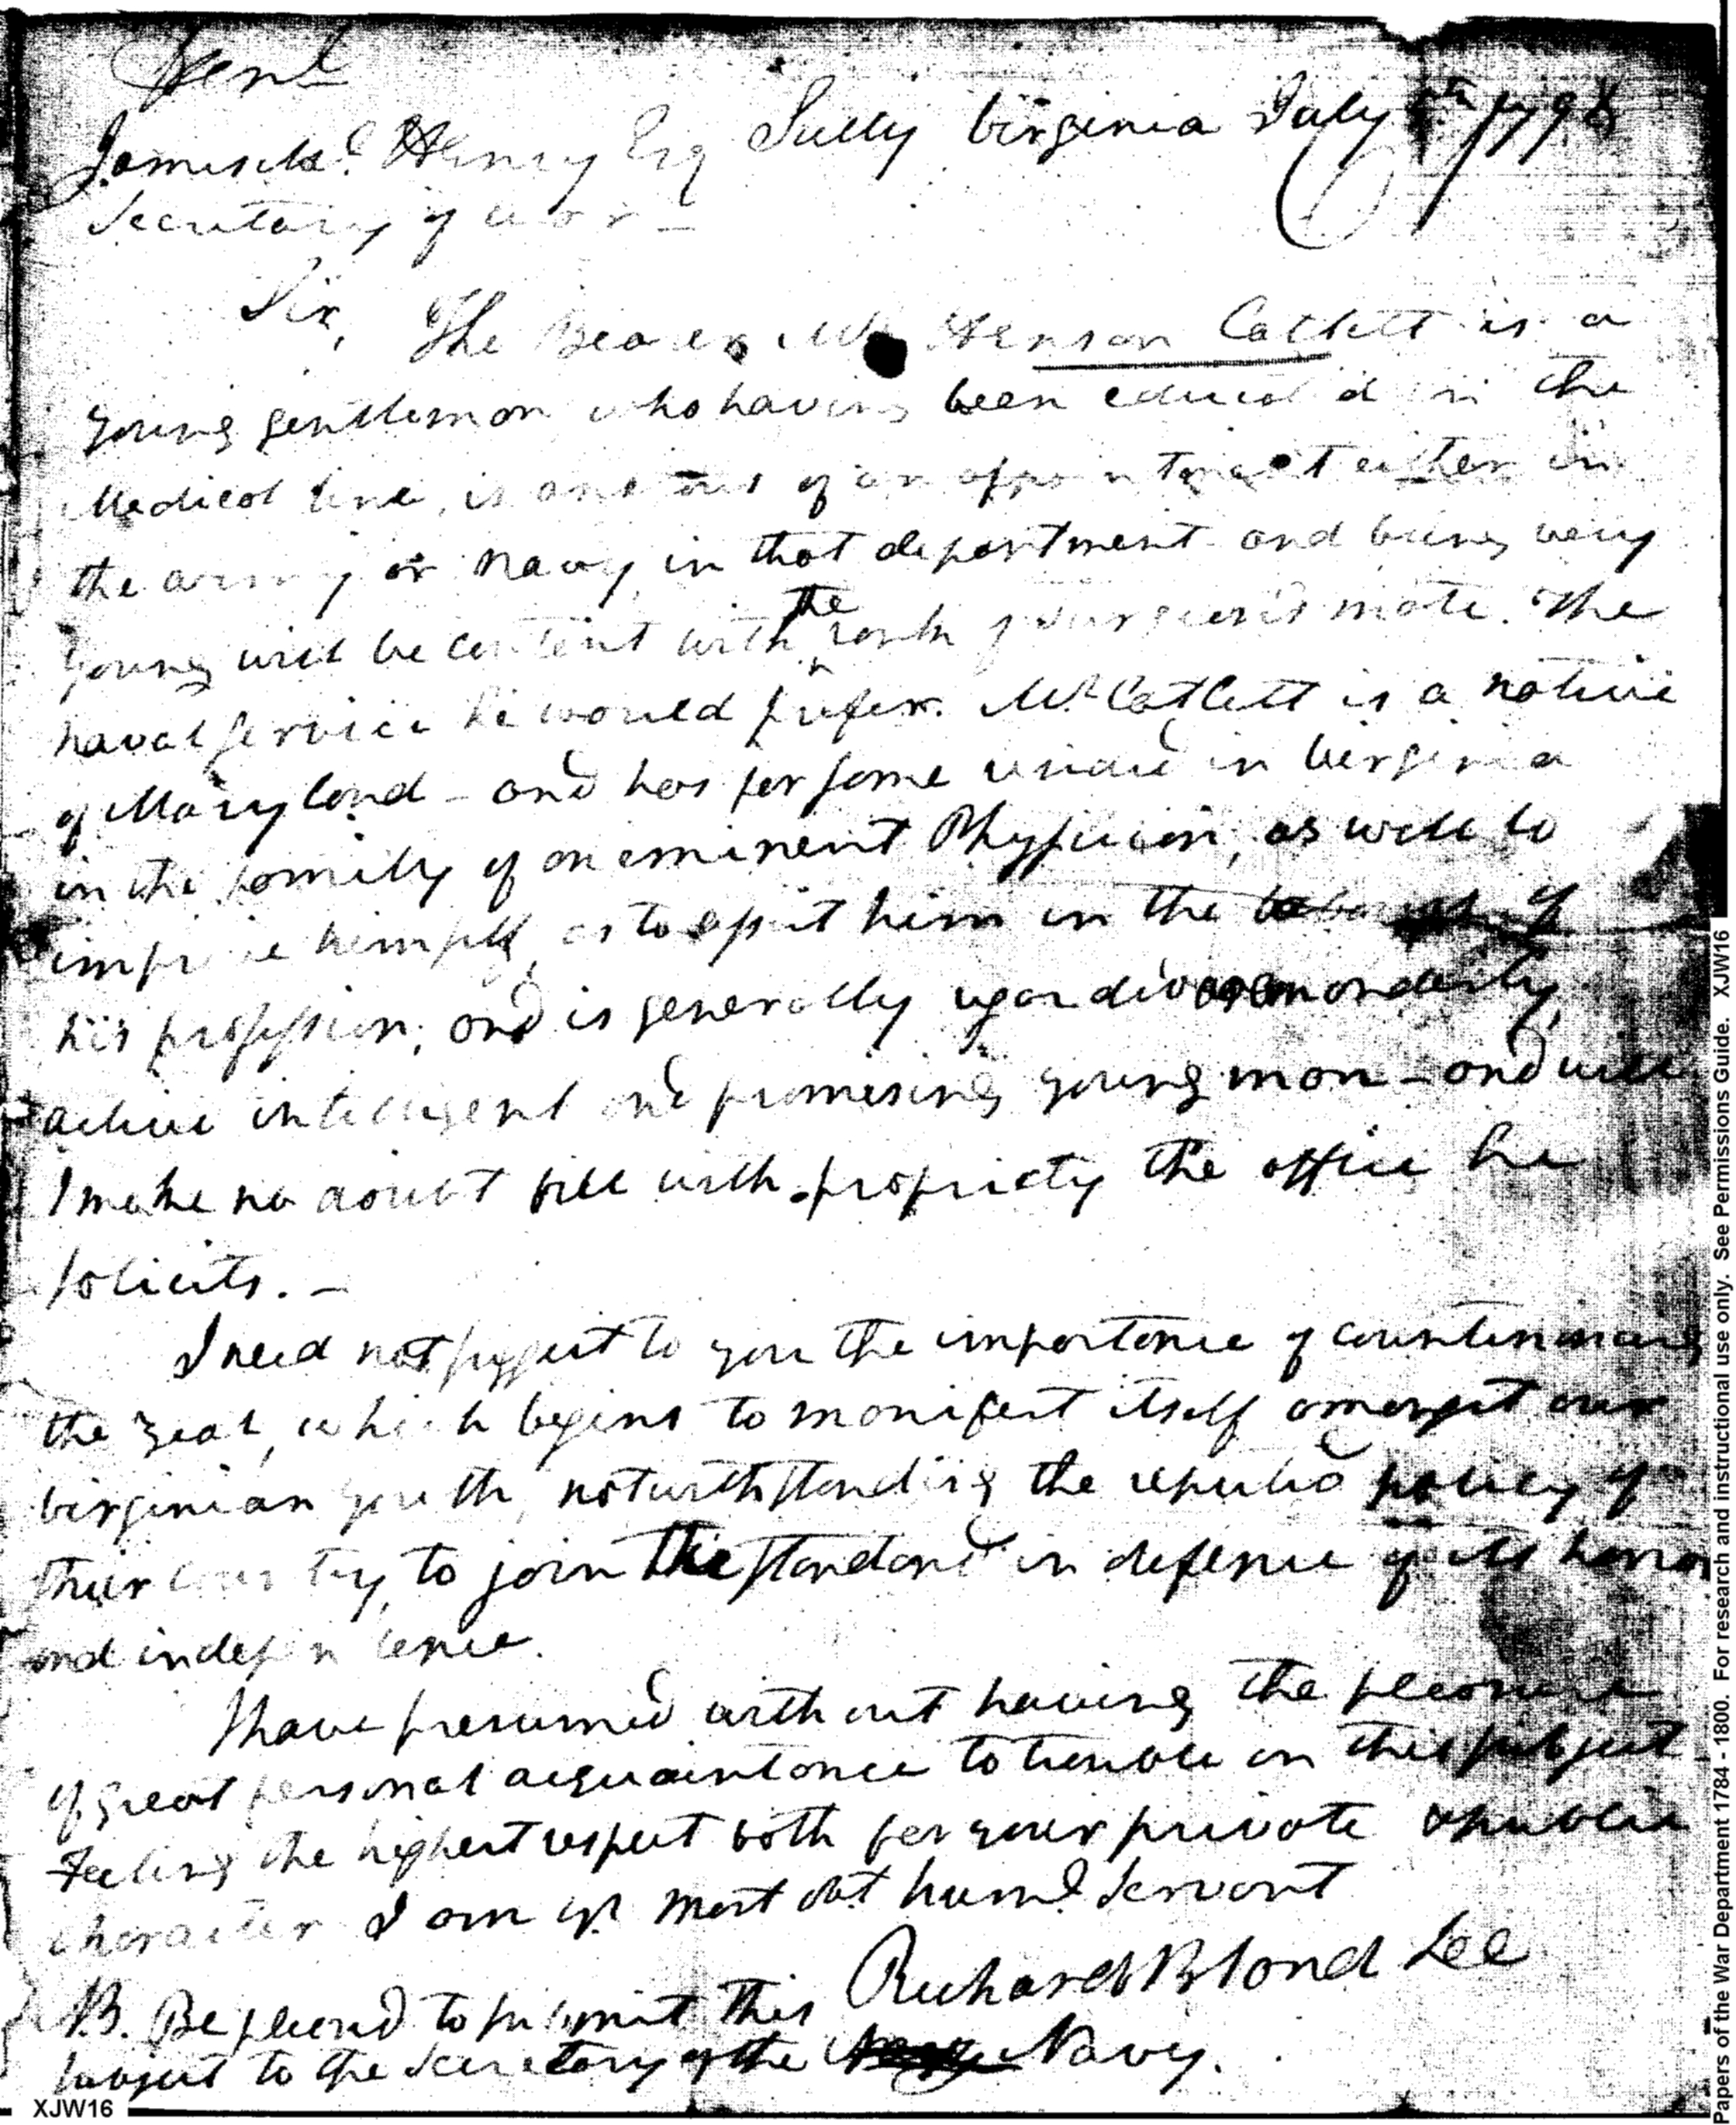 James McHenry Esq Sully Virginia July 1798
Secretary of War –
Sir, The Bearer Mr Henson Catlett is a
young gentleman who having been educated in the
Medical line, is anxious of an appointment either in
the army or navy in that department and being very
young will be content with the rank of surgeon's mate. The
naval service he would prefer. Mr. Catlett is a native
of Maryland – and has for some resided in Virginia
in the family of an eminent Physician, as well to
improve himself, as to assist him in the of
his profession; and is generally an orderly,
active intelligent and promising young man – and will
I make no doubt fill with propriety the office he
solicits. –
I need not suggest to you the importance of countenancing
the zeal, which begins to manifest itself amongst our
Virginian youth, notwithstanding the policy of
their country, to join the standard in defence of its honor
and independence.
I have presumed without having the pleasure
of great personal acquaintance to trouble on this subject
Feeling the highest respect both for your private & public
character I am yr. most obt huml Servant
Richard Bland Lee
NB. Be pleased to submit this
subject to the Secretary of the Navy.
Papers of the War Department 1784 - 1800. For research and instructional use only. See Permissions Guide. XJW16
XJW16